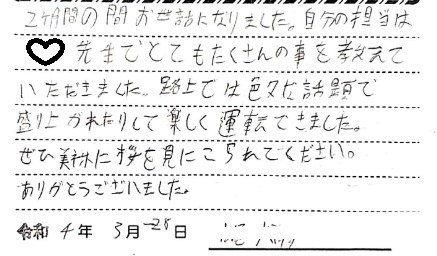 2ヶ月間の間お世話になりました。自分の担当は
先生でとてもたくさんの事を教えて
いただきました。路上では色々な話題で
盛り上がれたりして楽しく運転できました。
ぜひ美林に桜を見にこられてください。
ありがとうございました。
令和 4年 3月 28日